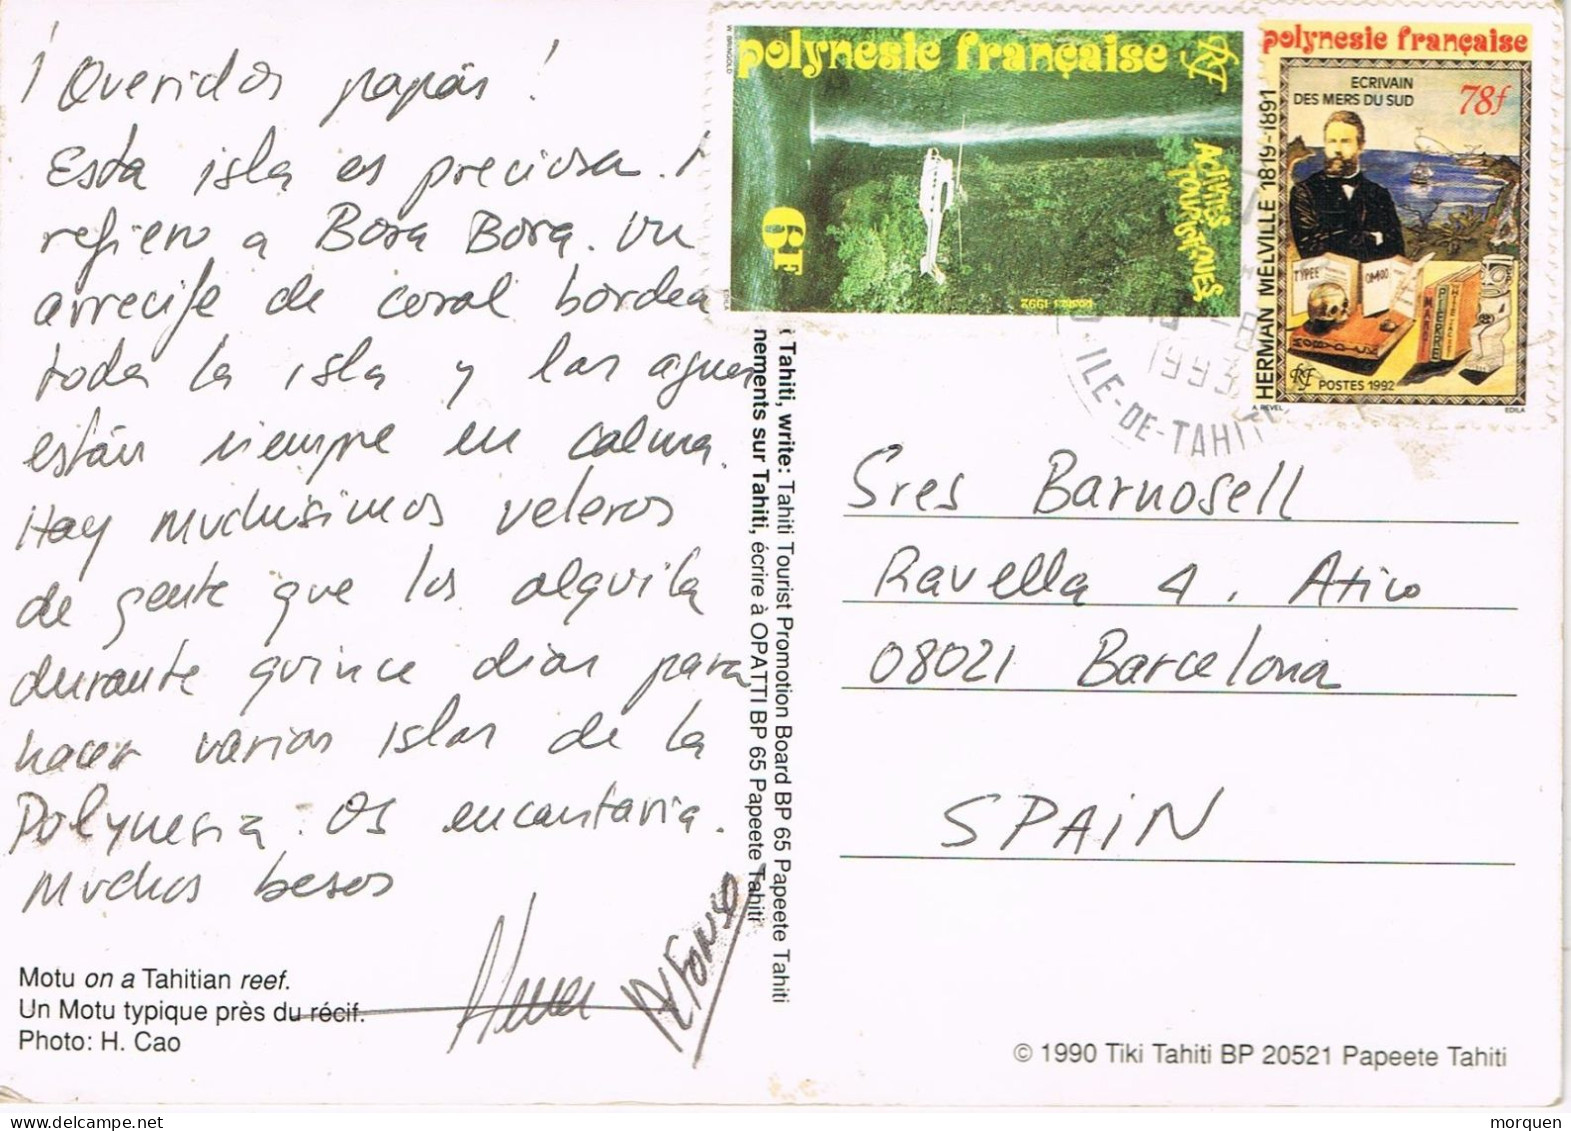 ¡Queridos papás!
Esta isla es preciosa. Me
refiero a Bora Bora. Un
arrecife de coral bordea
toda la isla y las aguas
están siempre en calma.
Hay muchisimos veleros
de gente que los alquila
durante quince dias para
hacer varias islas de la
Polynesia. Os encantaria.
Muchos besos
Alfonso
Motu on a Tahitian reef.
Un Motu typique près du récif.
Photo: H. Cao
Tahiti, write: Tahiti Tourist Promotion Board BP 65 Papeete Tahiti
nements sur Tahiti, écrire à OPATTI BP 65 Papeete Tahiti
W. BRINGOLD
polynesie française RF
ACTIVITES TOURISTIQUES
6F
postes 1992
polynesie française
ECRIVAIN
DES MERS DU SUD
78f
HERMAN MELVILLE 1819-1891
TYPEE
OMOO
MARDI
PIERRE
MOBY DICK
RF
POSTES 1992
A. REVEL
EDILA
1993
ILE-DE-TAHITI
Sres Barnosell
Ravella 4. Atico
08021 Barcelona
SPAIN
© 1990 Tiki Tahiti BP 20521 Papeete Tahiti
morquen